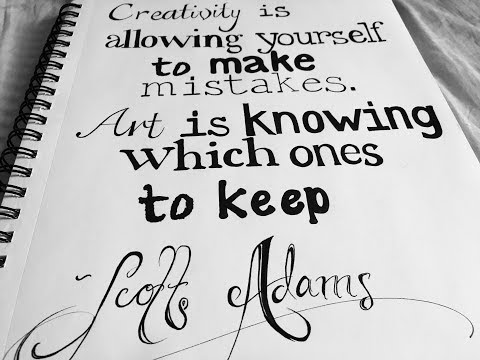 Creativity is
allowing yourself
to make
mistakes.
Art is knowing
which ones
to keep
~Scott Adams